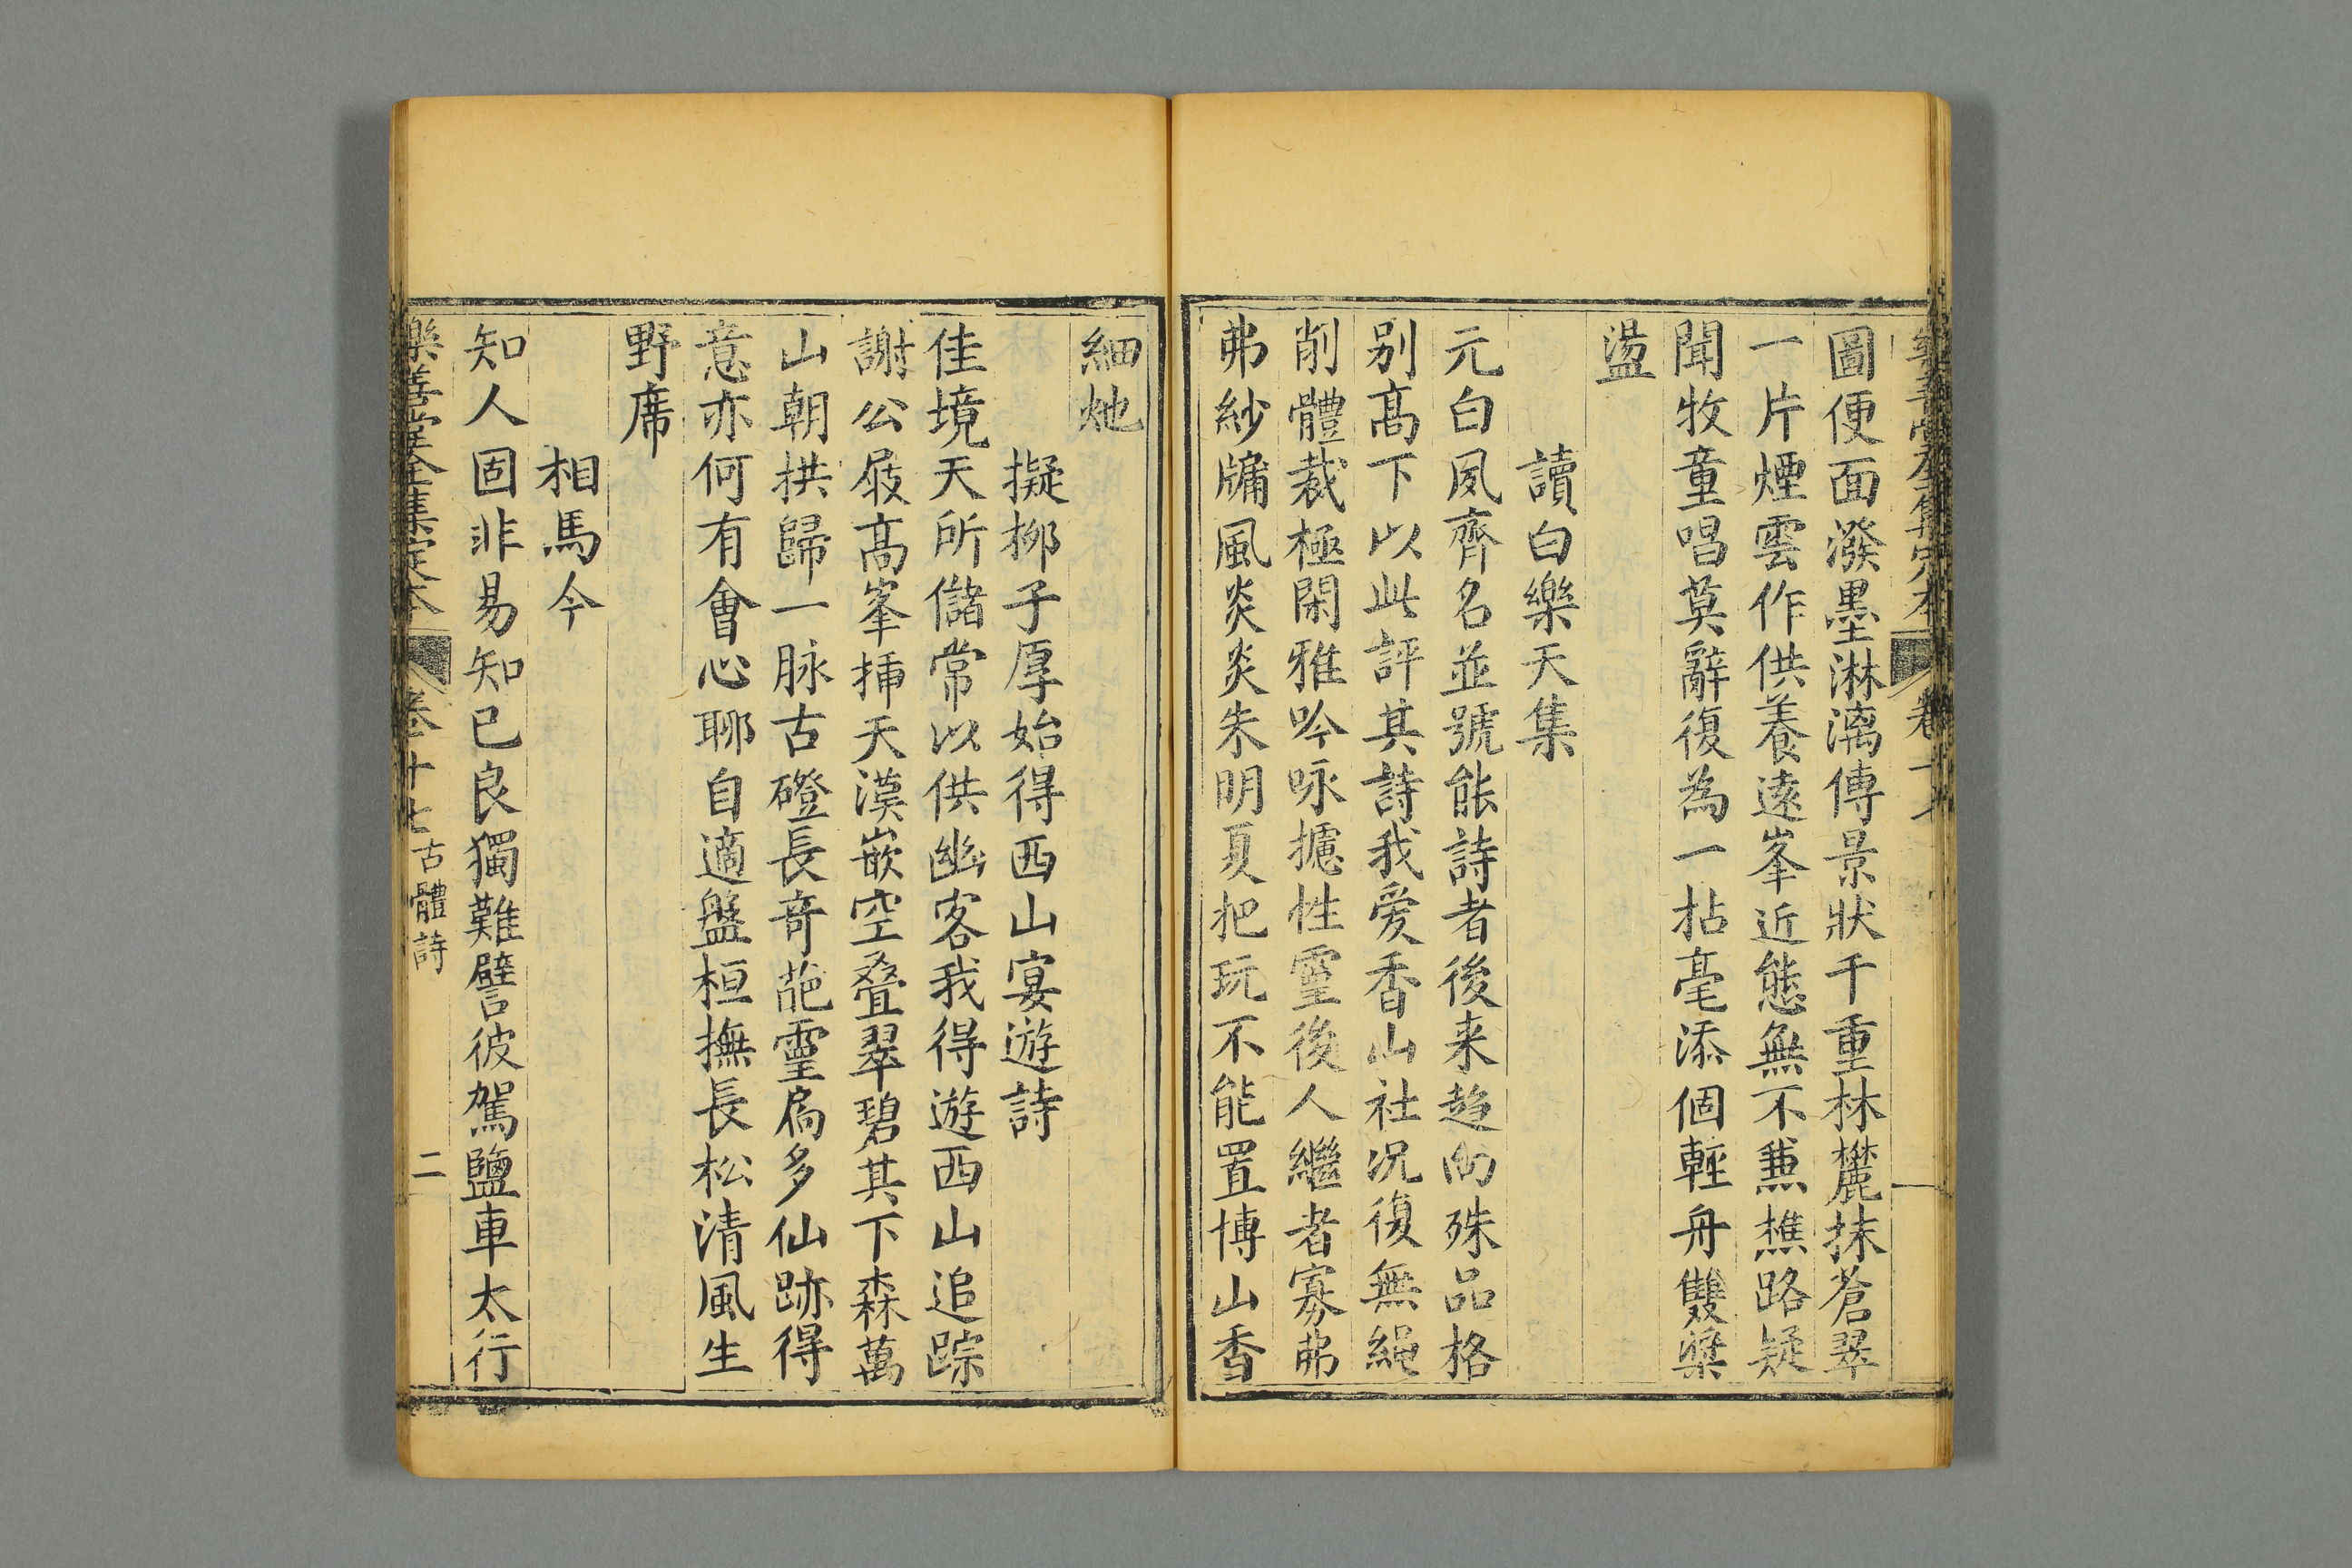 圖便面潑墨淋漓傳景狀千重林麓抹蒼翠
一片煙雲作供養遠峯近態無不兼樵路疑
聞牧童唱莫辭復為一拈毫添個輕舟雙槳
盪
讀白樂天集
元白夙齊名並號能詩者後来趋向殊品格
别髙下以此評其詩我爱香山社况復無繩
削體裁極閑雅吟咏攄性靈後人繼者寡弗
弗紗牗風炎炎朱明夏把玩不能置博山香
細灺
擬柳子厚始得西山宴遊詩
佳境天所儲常以供幽客我得遊西山追踪
謝公屐髙峯揷天漢嵌空叠翠碧其下森萬
山朝拱歸一脉古磴長竒葩靈扃多仙跡得
意亦何有會心聊自適盤桓撫長松清風生
野席
相馬今
知人固非易知已良獨難譬彼駕鹽車太行
樂善堂全集定本 卷十七 古體詩 二